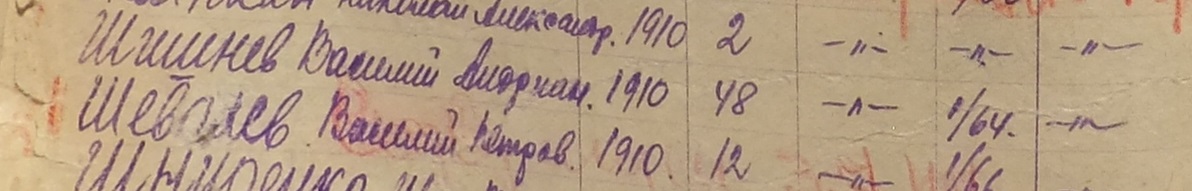 Николай Александр. 1910 2 -"- -"- -"-
Шишнев Василий Андриан. 1910 48 -"- 1/64. -"-
Шевалев Василий Петров. 1910. 12 -"- 1/66